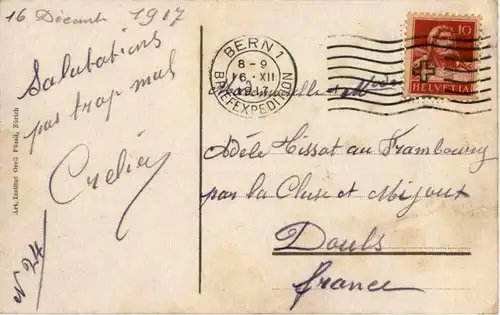 16 Décembre 1917
Salutations
pas trop mal
Crelier
Nº 24
Art. Institut Orell Füssli, Zürich
BERN 1
8-9
16.XII
1917
BRIEFEXPEDITION
10
HELVETIA
Mademoiselle
Adèle au Frambourg
par la Cluse et Mijoux
Doubs
france